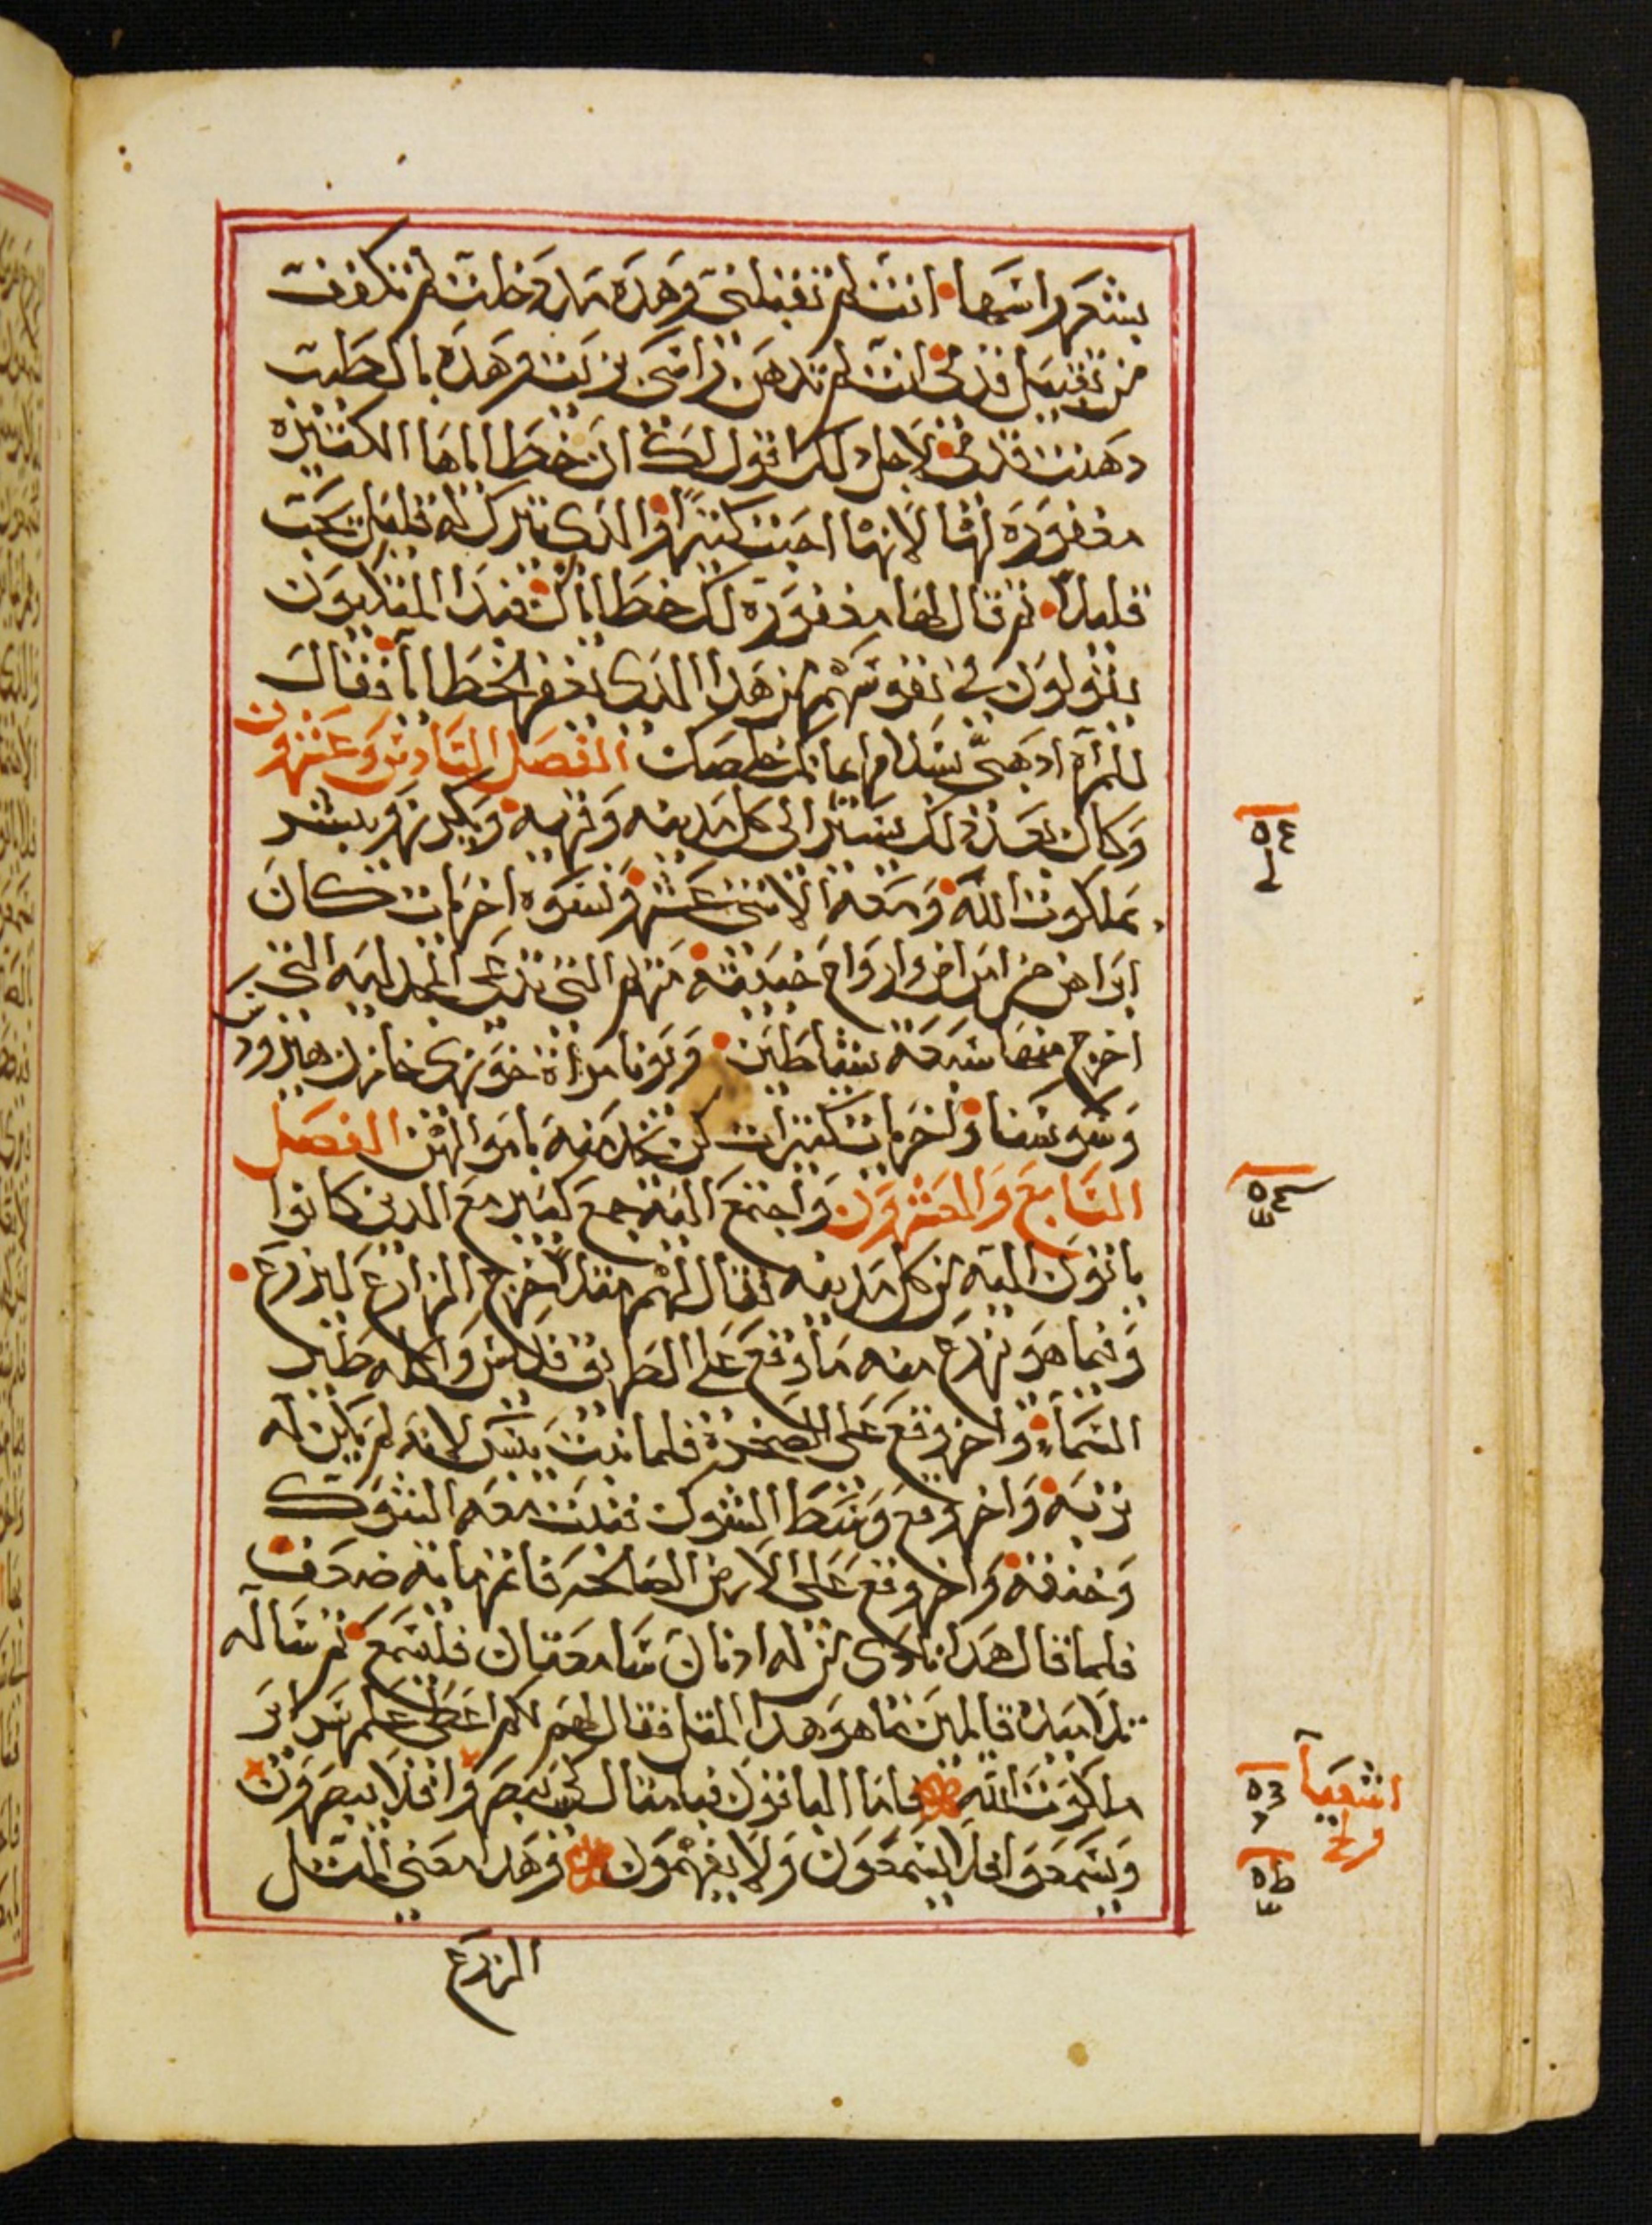 بشعر راسها انت لم تقبلني وهذه منذ دخلت لم تكفف
من تقبيل قدمي انت لم تدهن راسي بزيت وهذه بالطيب
دهنت قدمي لاجل ذلك اقول لك ان خطاياها الكثيره
مغفوره لها لانها احبت كثيرا والذي يترك له قليل يحب
قليلا ثم قال لها مغفوره لك خطاياك فبدا المتكيون
يقولون في نفوسهم من هذا الذي يغفر الخطايا فقال
للمراه اذهبي بسلام ايمانك خلصك الفصل السادس وعشرون
وكان بعد ذلك يسير الى كل مدينه وقريه ويكرز ويبشر
بملكوت الله ومعه الاثني عشر ونسوه اخريات كان
ابراهن من امراض وارواح خبيثه مريم التي تدعى المجدليه التي
اخرج منها سبعه شياطين ويونا مراة خوزي خازن هيرودس
وسوسنا واخريات كثيرات كن يخدمنه باموالهن الفصل
السابع والعشرون واجتمع اليه جمع كبير مع الذين كانوا
ياتون اليه من كل مدينه فقال لهم مثلا خرج الزارع ليزرع
وفيما هو يزرع منه ما وقع على الطريق فديس واكله طير
السماء واخر وقع على الصخره فلما نبت يبس لانه لم يكن له
تربه واخر وقع وسط الشوك فنبت معه الشوك
وخنقه واخر وقع على الارض الصالحه فاثمر مايه ضعف
فلما قال هذا نادى من له اذنان سامعتان فليسمع ثم ساله
تلاميذه قايلين ما هو هذا المثل فقال لهم لكم اعطى علم سراير
ملكوت الله فاما الباقون فبامثال لكي يبصروا فلا يبصرون
ويسمعوا فلا يسمعون ولا يفهمون وهذا معنى المثل
الزرع
اشعيا